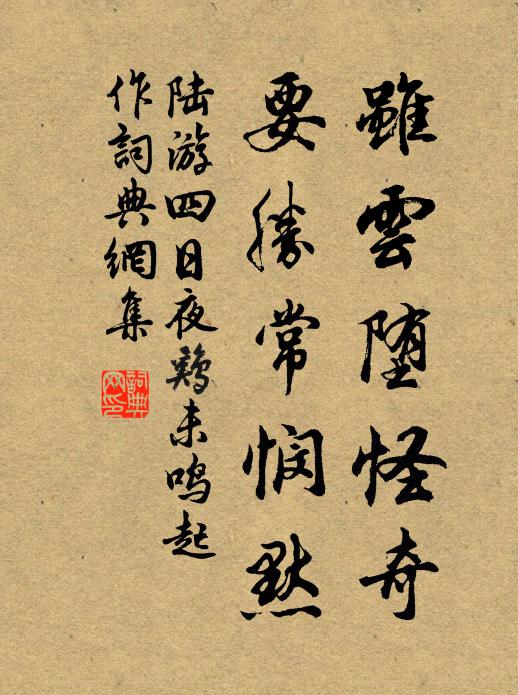 雖雲堕怪奇
要勝常悯默
陆游四日夜鶏未鸣起
作詞典網集
詞典